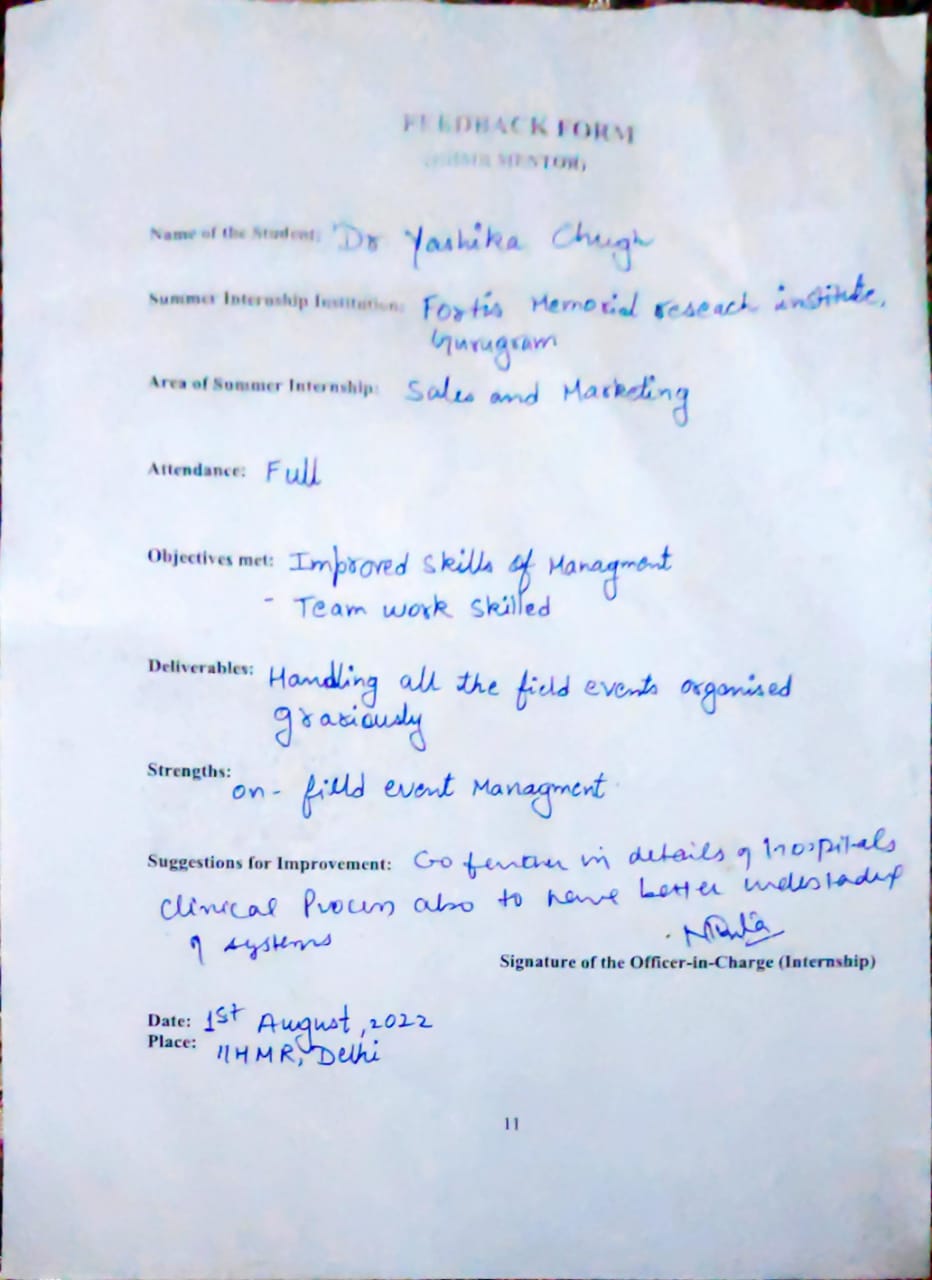 FEEDBACK FORM
(IIHMR MENTOR)
Name of the Student: Dr Yashika Chugh
Summer Internship Institution: Fortis Memorial reseach institute,
Gurugram
Area of Summer Internship: Sales and Marketing
Attendance: Full
Objectives met: Improved skills of Managment
- Team work skilled
Deliverables: Handling all the field events organised
graxiously
Strengths:
on-field event Managment
Suggestions for Improvement: Go further in details of hospitals
clinical Process also to have better
of systems
Signature of the Officer-in-Charge (Internship)
Date: 1st August, 2022
Place: IIHMR, Delhi
11